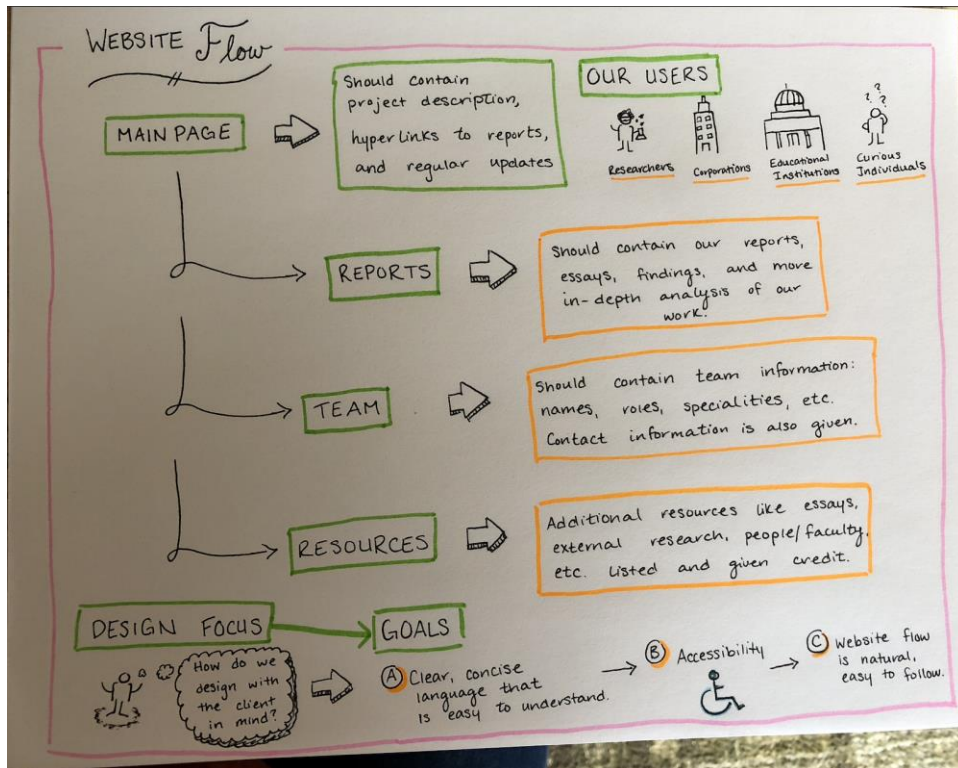 WEBSITE Flow
MAIN PAGE
Should contain
project description,
hyperlinks to reports,
and regular updates
OUR USERS
Researchers
Corporations
Educational
Institutions
? ? ?
Curious
Individuals
REPORTS
Should contain our reports,
essays, findings, and more
in-depth analysis of our
work.
TEAM
Should contain team information:
names, roles, specialities, etc.
Contact information is also given.
RESOURCES
Additional resources like essays,
external research, people/faculty,
etc. listed and given credit.
DESIGN FOCUS
GOALS
How do we
design with
the client
in mind?
A Clear, concise
language that
is easy to understand.
B Accessibility
C Website flow
is natural,
easy to follow.